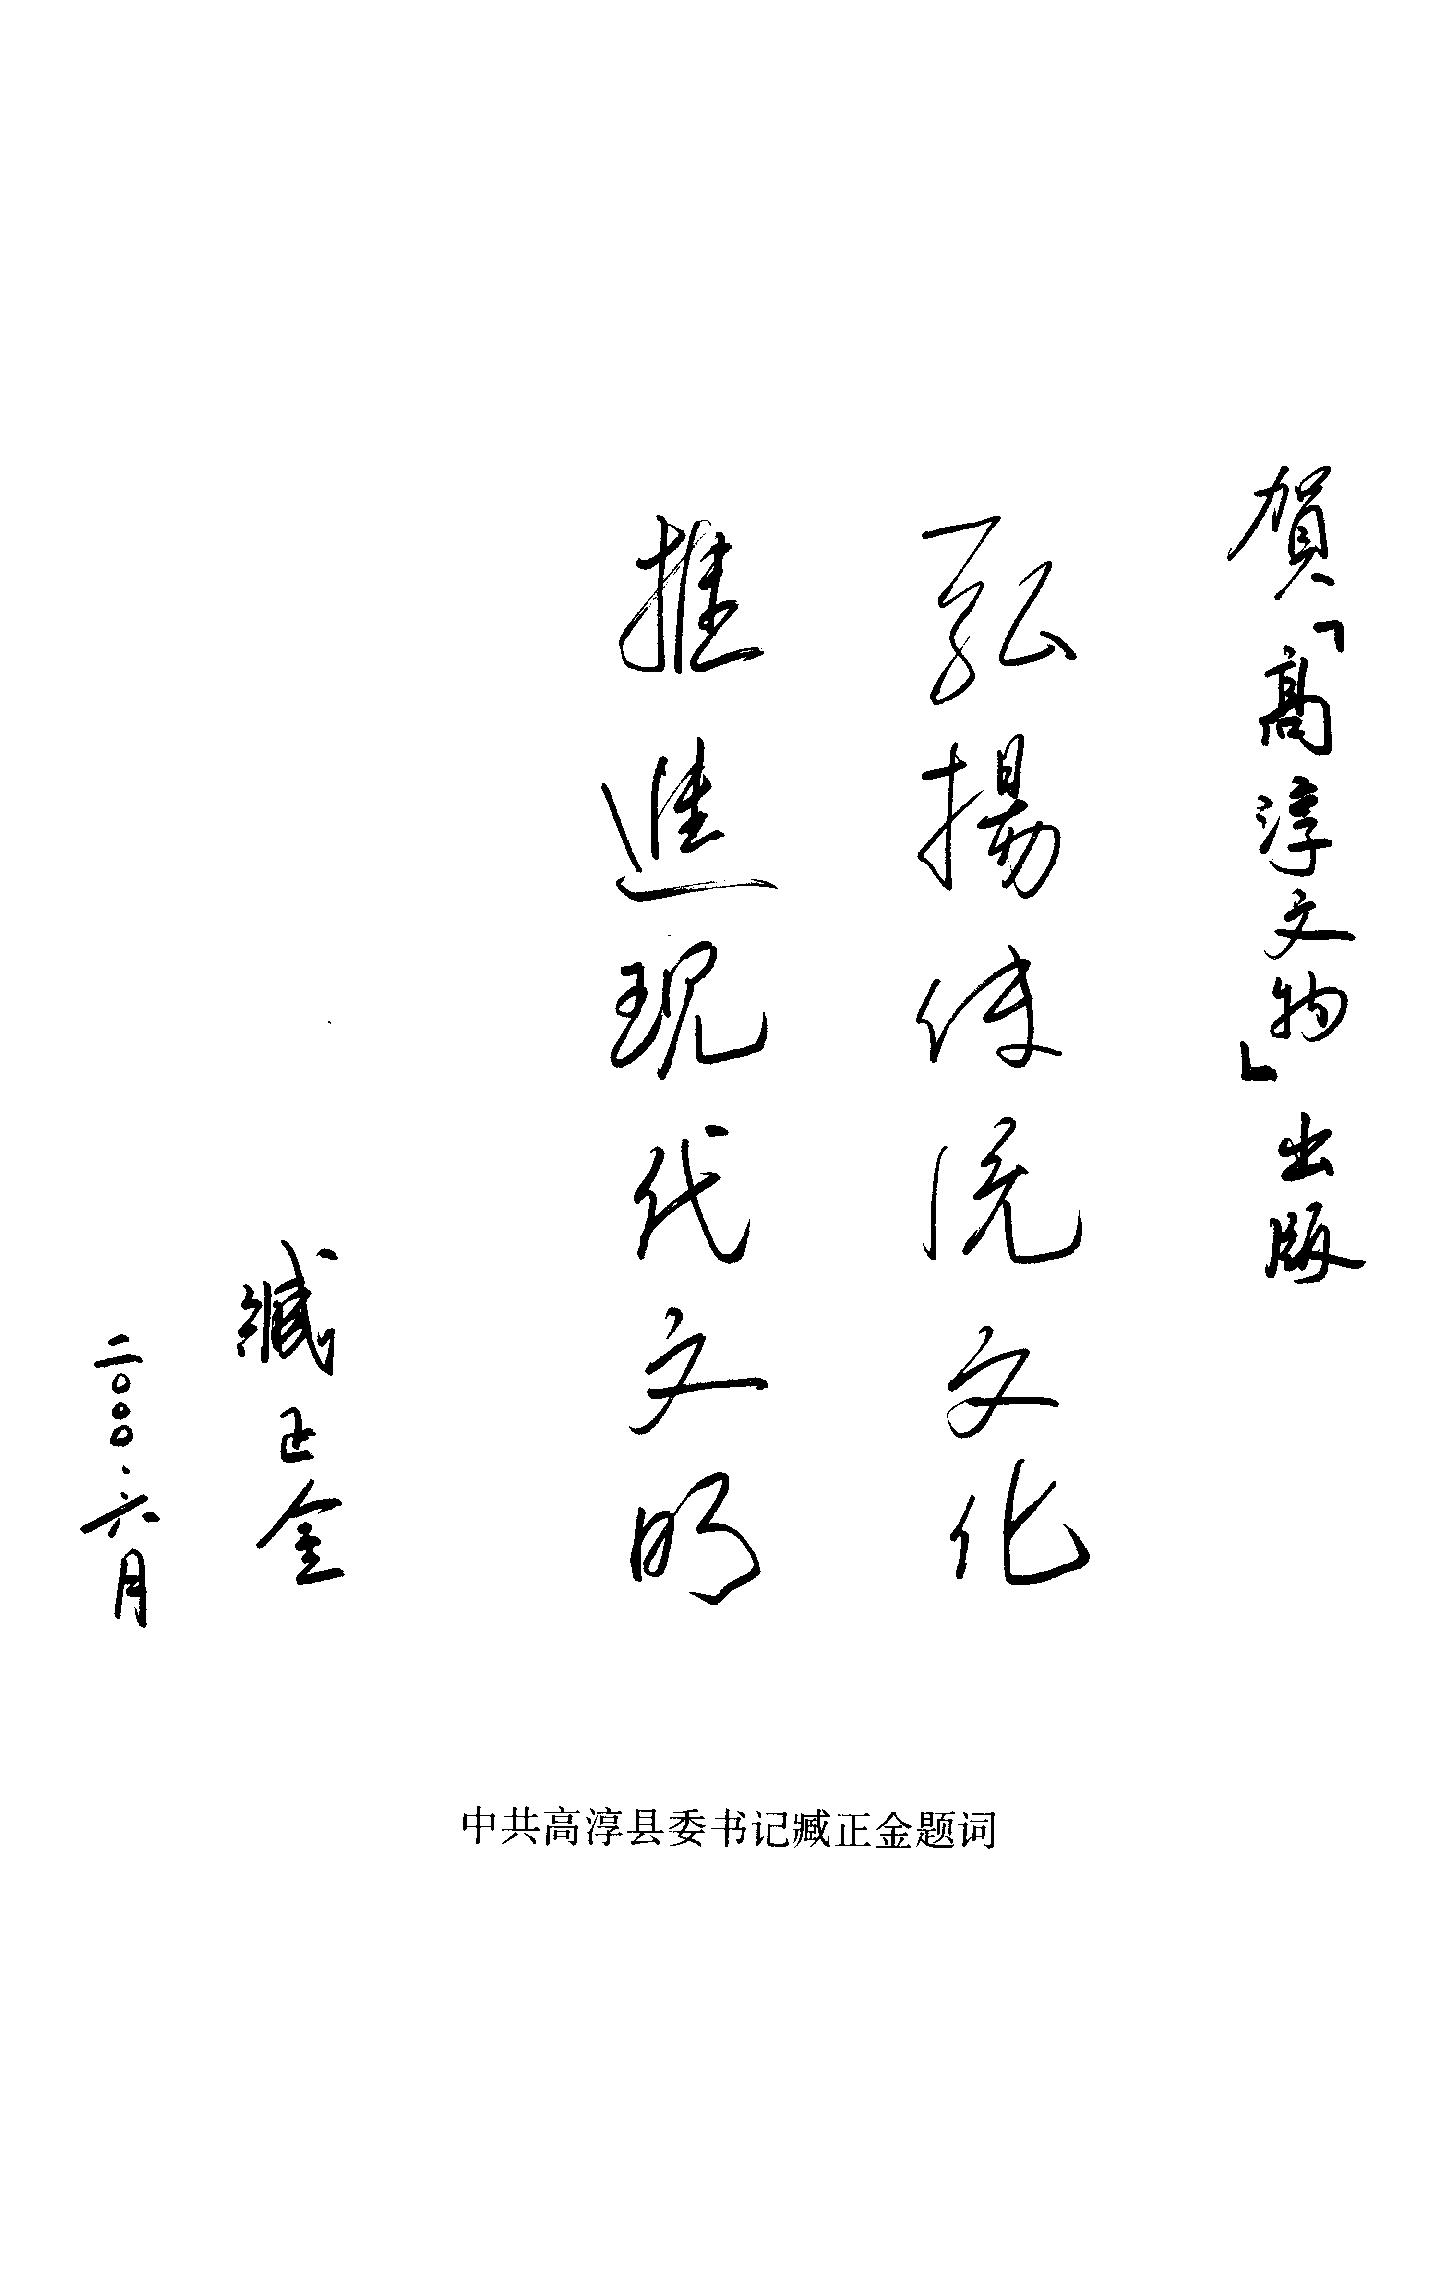 賀「高淳文物」出版
弘揚传统文化
推進现代文明
臧正金
二〇〇〇.六月
中共高淳县委书记臧正金题词